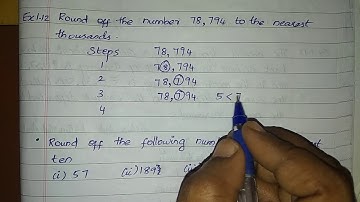 Ex 1.12 Round off the number 78,794 to the nearest
thousands.
Steps 78,794
1 78,794
2 78,794
3 78,794 5 < 7
4
• Round off the following
ten
(i) 57 (ii) 189